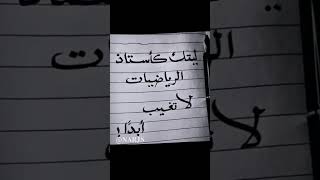 ليتك كأستاذ
الرياضيات
لا تغيب
أبدًا!
@NARIS